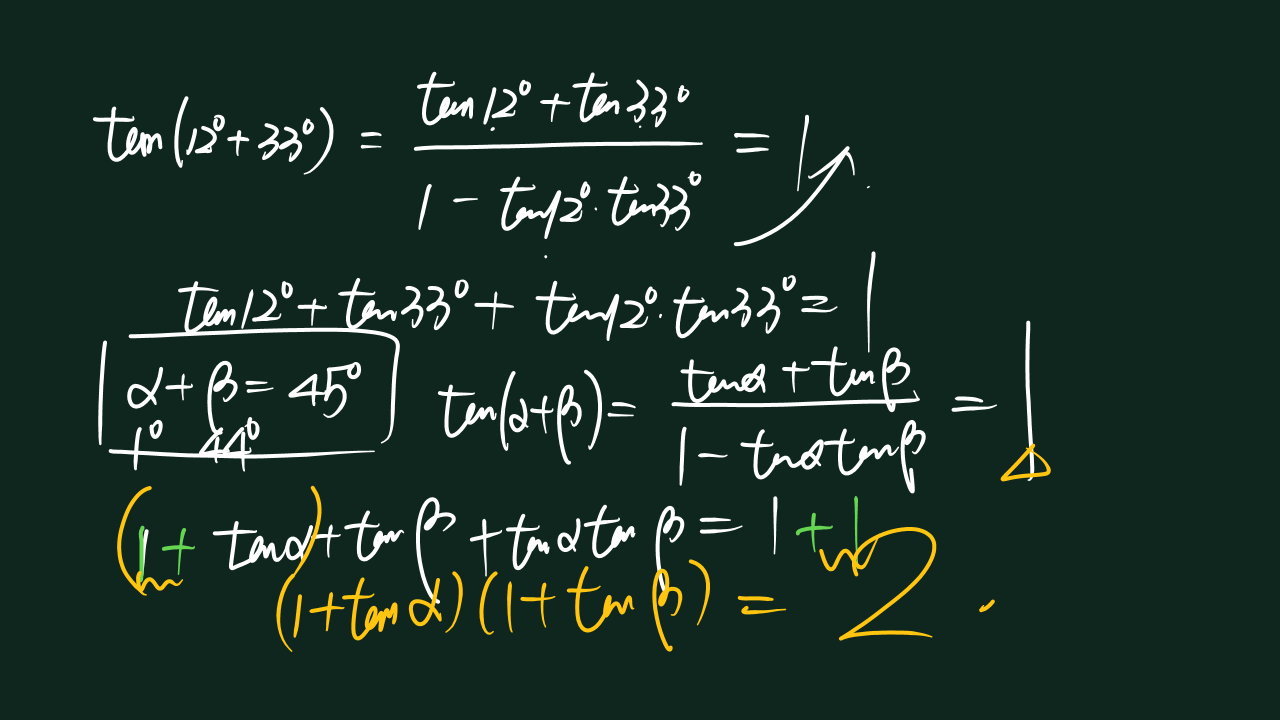 tan(12°+33°) = (tan12°+tan33°)/(1-tan12°·tan33°) = 1
tan12°+tan33°+tan12°·tan33°=1
α+β=45°
1° 44°
tan(α+β)= (tanα+tanβ)/(1-tanαtanβ) = 1
(1+tanα)+tanβ+tanαtanβ=1+1
(1+tanα)(1+tanβ)=2.